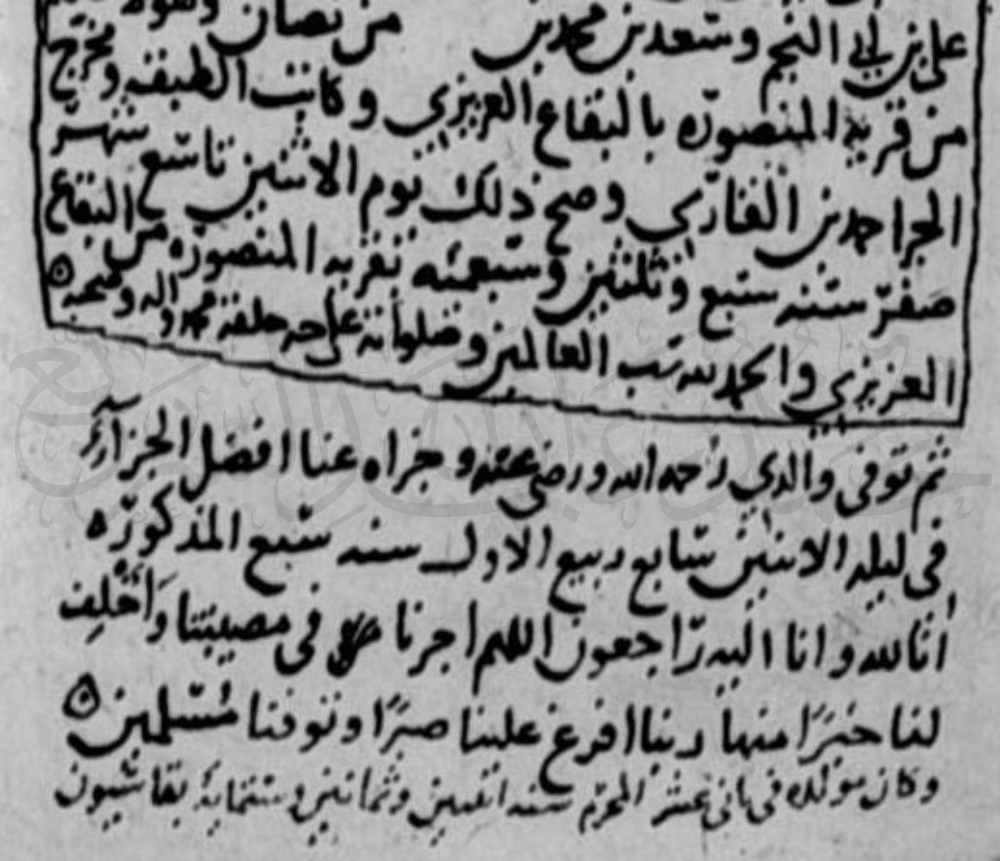 علي بن أبي النجم وسعد بن محمد بن من نصار
من قرية المنصورة بالبقاع العزيزي وكاتب الطبقة ومخرج
الجزا احمد بن الفارقي وصح ذلك يوم الاثنين تاسع شهر
صفر سنة سبع وثلثين وسبعمئه بقرية المنصورة من البقاع
العزيزي والحمد لله رب العالمين وصلواته على خير خلقه محمد واله وصحبه
ثم توفى والدي رحمه الله ورضي عنه وجزاه عنا افضل الجزا
في ليلة الاثنين سابع ربيع الاول سنه سبع المذكوره
انا لله وانا اليه راجعون اللهم اجرنا في مصيبتنا وَاخْلِف
لنا خيرًا منها ربنا افرغ علينا صبرًا وتوفنا مُسْلمين
وكان مولده في ثاني عشر المحرم سنه اثنين وثمانين وستماية بقاسيون